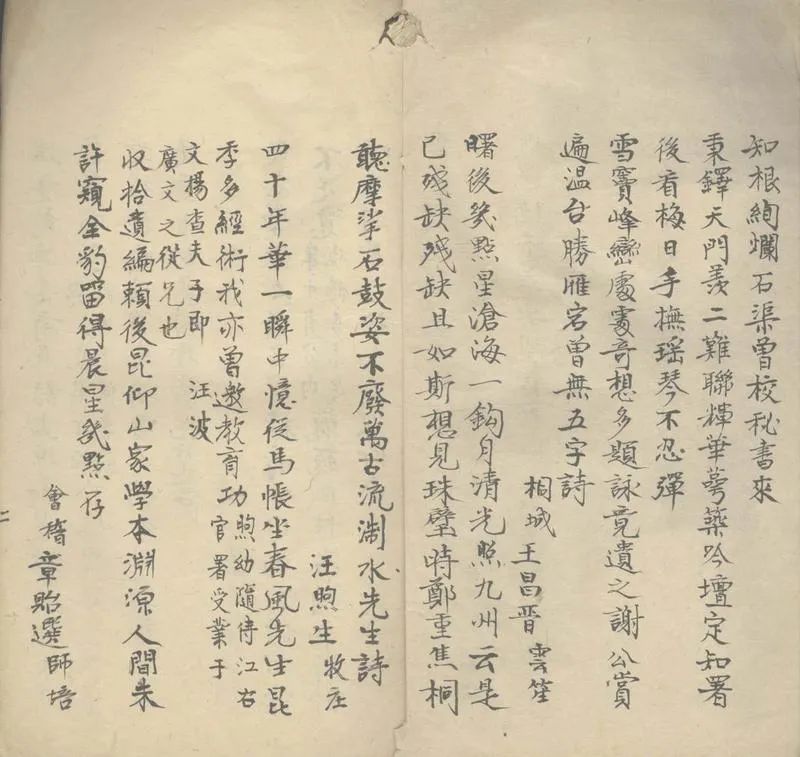 知根絢爛石渠曾校秘書來
秉鐸天門羨二難聯韡華萼築吟壇定知署
後看梅日手撫瑤琴不忍彈
雪竇峰巒處處奇想多題詠竟遺之謝公賞
遍温台勝雁宕曾無五字詩
桐城王昌晉雲笙
曙後幾點星滄海一鈎月清光照九州云是
已殘缺殘缺且如斯想見珠璧時鄭重焦桐
聽摩挲石鼓姿不廢萬古流澍水先生詩
汪煦生牧庄
四十年華一瞬中憶從馬帳坐春風先生昆
季多經術我亦曾邀教育功煦幼隨侍江右
官署受業于
文楊查夫子即汪波
廣文之從兄也
収拾遺編賴後昆仰山家學本淵源人間未
許窺全豹留得晨星幾點存
會稽章貽選師培
二